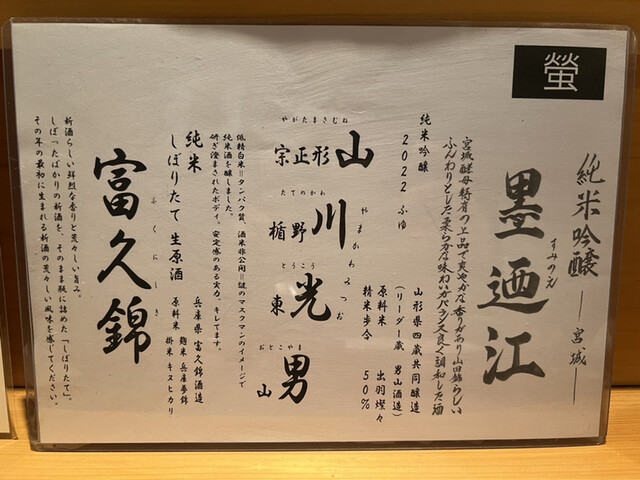 螢
純米吟醸 ― 宮城 ―
すみのえ
墨廼江
宮城酵母特有の上品で爽やかな香りがあり山田錦らしい
ふんわりとした柔らかな味わいがバランス良く調和した酒
純米吟醸
2022 ふゆ
山形県四蔵共同醸造
(リーダー蔵 男山酒造)
原料米 出羽燦々
精米歩合 50%
やまかわみつお
山川光男
やがたまさむね
山形正宗
たてのかわ
楯野川
とうこう
東光
おとこやま
男山
低精白米=タンパク質、酒米非公開=謎のマスクマンのイメージで
純米酒を醸しました。
研ぎ澄まされたボディ。安定感のある実力。キレてます。
純米
しぼりたて 生原酒
兵庫県 富久錦酒造
原料米 麹米 兵庫夢錦
掛米 キヌヒカリ
ふくにしき
富久錦
新酒らしい鮮烈な香りと荒々しい旨み。
しぼったばかりの新酒を、そのまま瓶に詰めた「しぼりたて」。
その年の最初に生まれる新酒の荒々しい風味を感じてください。